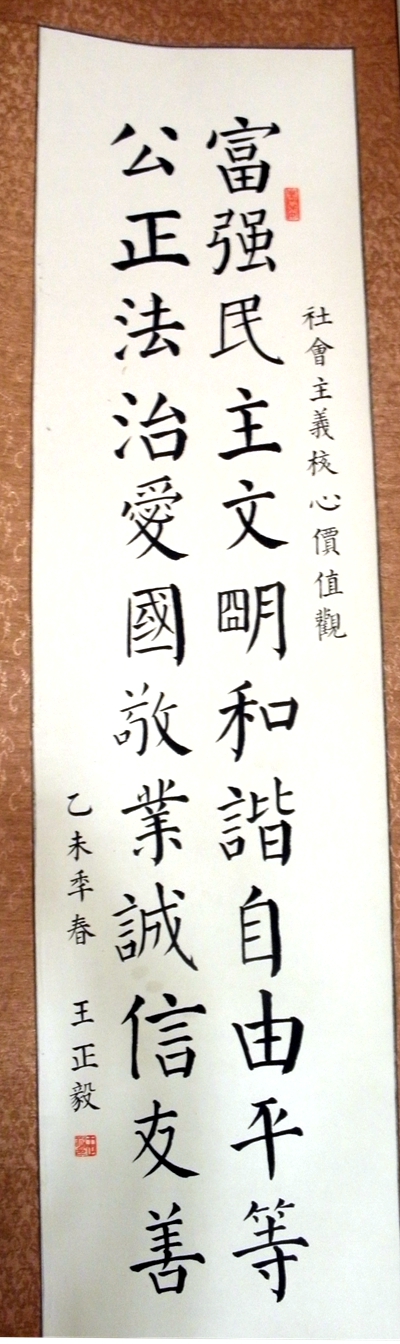 社會主義核心價值觀
富强民主文明和諧自由平等
公正法治愛國敬業誠信友善
乙未季春 王正毅